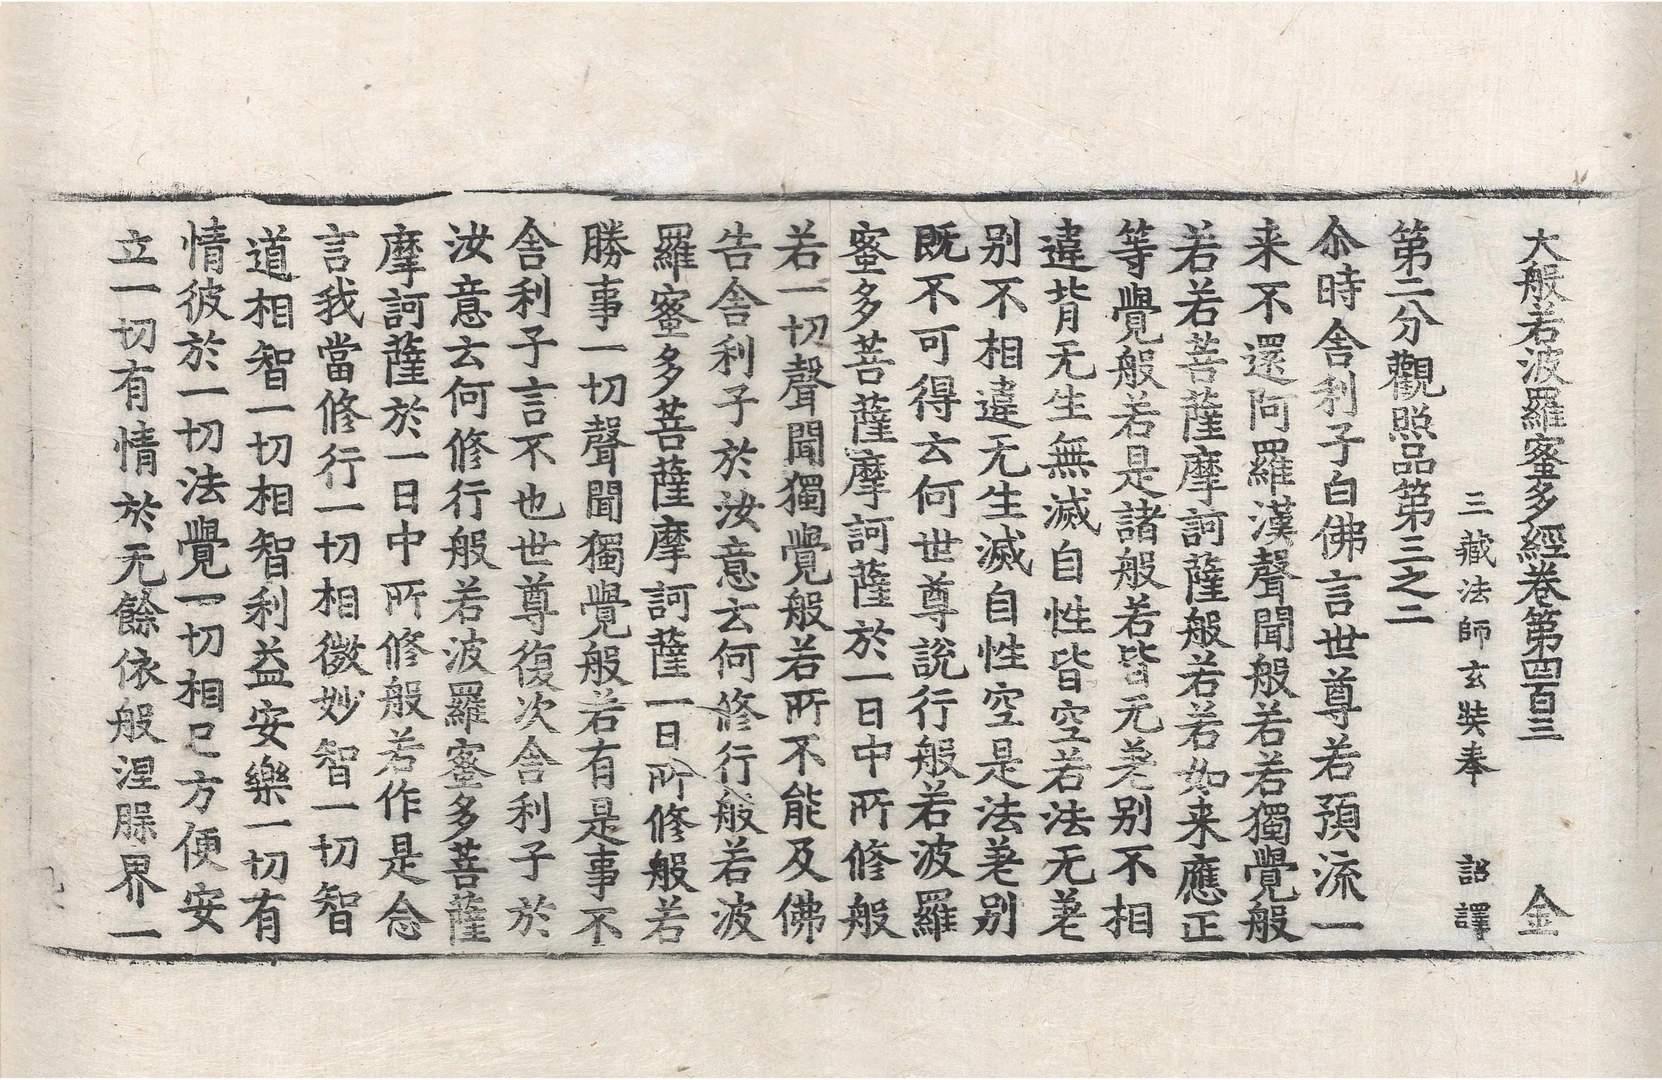 大般若波羅蜜多經卷第四百三 金
三藏法師玄奘奉 詔譯
第二分觀照品第三之二
尒時舍利子白佛言世尊若預流一
来不還阿羅漢聲聞般若若獨覺般
若若菩薩摩訶薩般若若如来應正
等覺般若是諸般若皆无差别不相
違背无生無滅自性皆空若法无差
别不相違无生滅自性空是法差别
既不可得云何世尊說行般若波羅
蜜多菩薩摩訶薩於一日中所修般
若一切聲聞獨覺般若所不能及佛
告舍利子於汝意云何修行般若波
羅蜜多菩薩摩訶薩一日所修般若
勝事一切聲聞獨覺般若有是事不
舍利子言不也世尊復次舍利子於
汝意云何修行般若波羅蜜多菩薩
摩訶薩於一日中所修般若作是念
言我當修行一切相微妙智一切智
道相智一切相智利益安樂一切有
情彼於一切法覺一切相已方便安
立一切有情於无餘依般涅槃界一